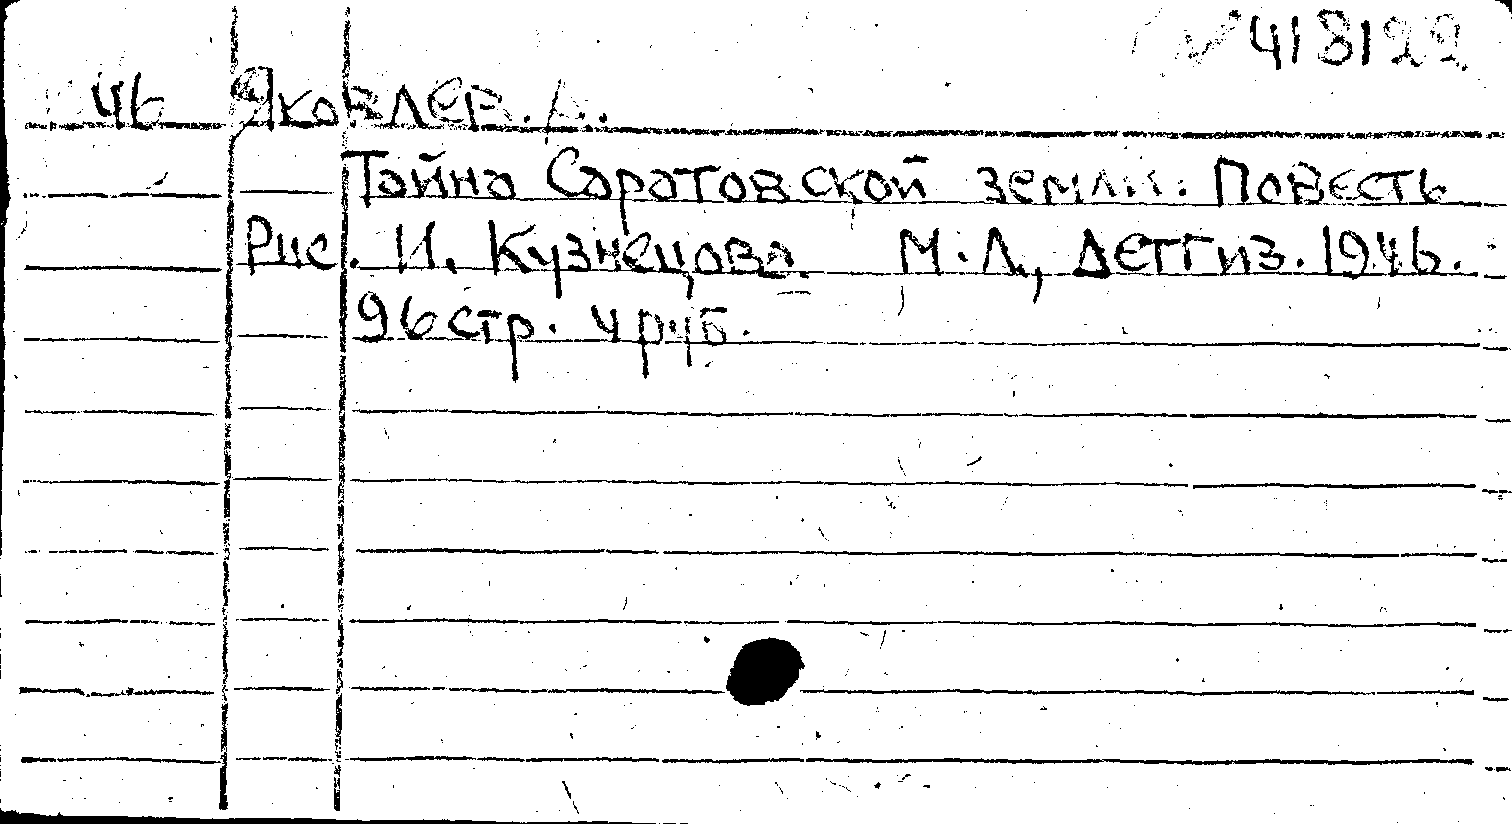 418122
46 Яковлев. А.
Тайна Саратовской земли. Повесть
Рис. И. Кузнецова. М.Л., Детгиз. 1946.
96 стр. 4 руб.